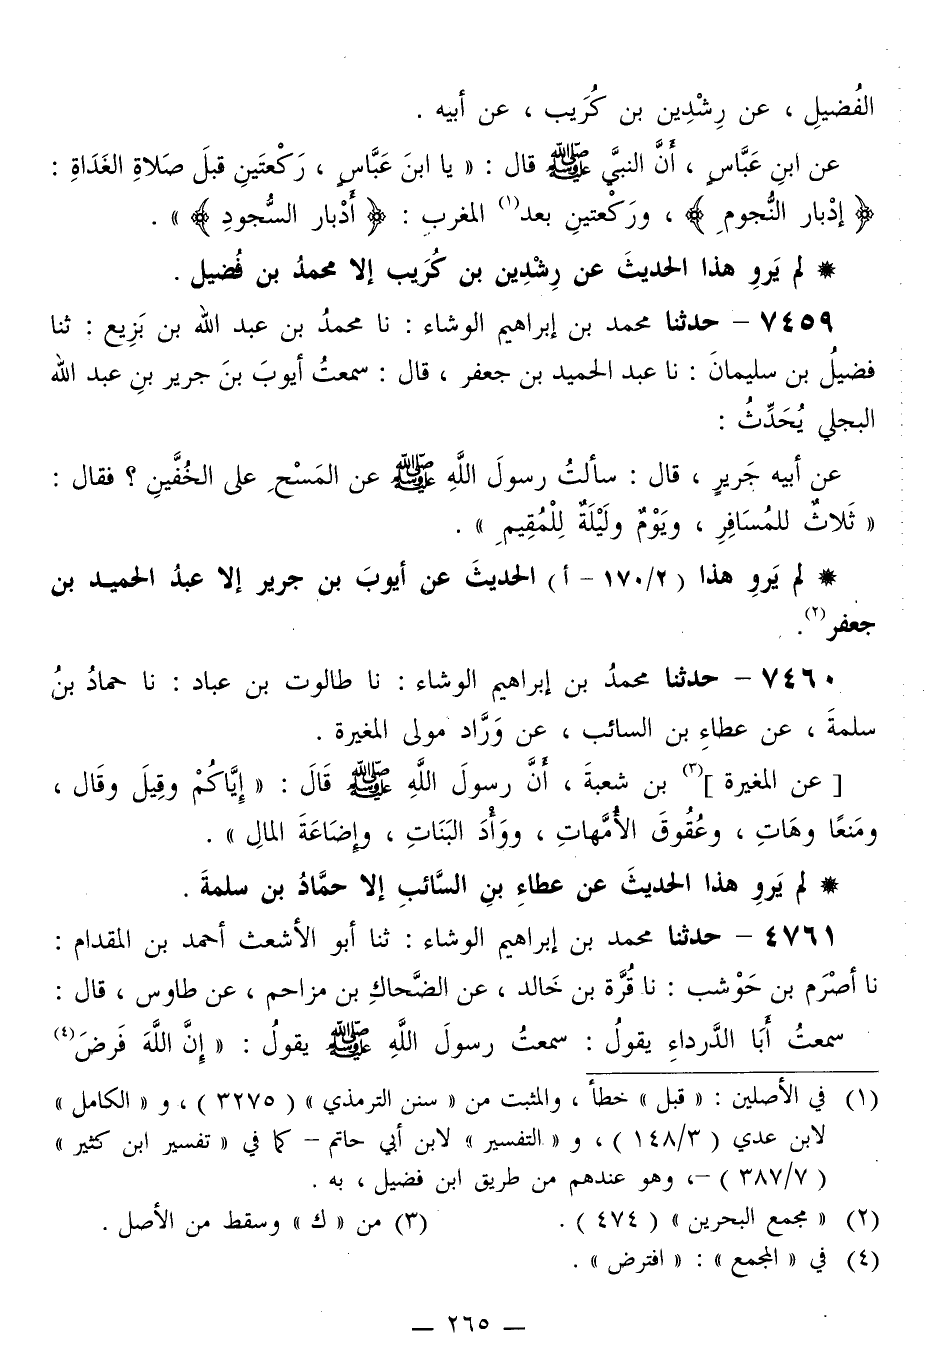 الفُضيلِ ، عن رِشْدِين بن كُرَيب ، عن أبيه .
عن ابنِ عَبَّاسٍ ، أَنَّ النبيَّ ﷺ قال : « يا ابنَ عَبَّاسٍ ، رَكْعتَينِ قبلَ صَلاةِ الغَدَاةِ :
﴿ إدْبار النُّجومِ ﴾ ، ورَكْعتينِ بعد(١) المغربِ : ﴿ أَدْبار السُّجودِ ﴾ » .
* لم يَروِ هذا الحديثَ عن رِشْدِين بن كُرَيب إلا محمدُ بن فُضيل .
٧٤٥٩ – حدثنا محمد بن إبراهيم الوشاء : نا محمدُ بن عبد الله بن بَزِيع : ثنا
فضيلُ بن سليمانَ : نا عبد الحميد بن جعفر ، قال : سمعتُ أيوبَ بنَ جرير بنِ عبد الله
البجلي يُحَدِّثُ :
عن أبيه جَريرٍ ، قال : سألتُ رسولَ اللَّهِ ﷺ عن المَسْحِ على الخُفَّينِ ؟ فقال :
« ثَلاثٌ للمُسَافِرِ ، ويَوْمٌ ولَيْلَةٌ لِلْمُقِيمِ » .
* لم يَروِ هذا ( ٢/ ١٧٠ – أ ) الحديثَ عن أيوبَ بن جرير إلا عبدُ الحميد بن
جعفر(٢).
٧٤٦٠ – حدثنا محمدُ بن إبراهيم الوشاء : نا طالوت بن عباد : نا حمادُ بنُ
سلمةَ ، عن عطاءِ بن السائب ، عن وَرَّاد مولى المغيرة .
[ عن المغيرة ](٣) بن شعبةَ ، أَنَّ رسولَ اللَّهِ ﷺ قَالَ : « إِيَّاكُمْ وقِيلَ وقَال ،
ومَنعًا وهَاتِ ، وعُقُوقَ الأُمَّهاتِ ، ووَأْدَ البَنَاتِ ، وإِضَاعَةَ المالِ » .
* لم يَروِ هذا الحديثَ عن عطاءِ بنِ السَّائبِ إلا حمَّادُ بن سلمةَ .
٤٧٦١ – حدثنا محمد بن إبراهيم الوشاء : ثنا أبو الأشعث أحمد بن المقدام :
نا أصْرَم بن حَوْشب : نا قُرَّة بن خَالد ، عن الضَّحاكِ بن مزاحم ، عن طاوس ، قال :
سمعتُ أبَا الدَّرداءِ يقولُ : سمعتُ رسولَ اللَّهِ ﷺ يقولُ : « إِنَّ اللَّهَ فَرضَ(٤)
(١) في الأصلين : « قبل » خطأ ، والمثبت من « سنن الترمذي » ( ٣٢٧٥ ) ، و « الكامل »
لابن عدي ( ٣/ ١٤٨ ) ، و « التفسير » لابن أبي حاتم – كما في « تفسير ابن كثير »
( ٧/ ٣٨٧ ) –، وهو عندهم من طريق ابن فضيل ، به .
(٢) « مجمع البحرين » ( ٤٧٤ ) . (٣) من « ك » وسقط من الأصل .
(٤) في « المجمع » : « افترض » .
— ٢٦٥ —